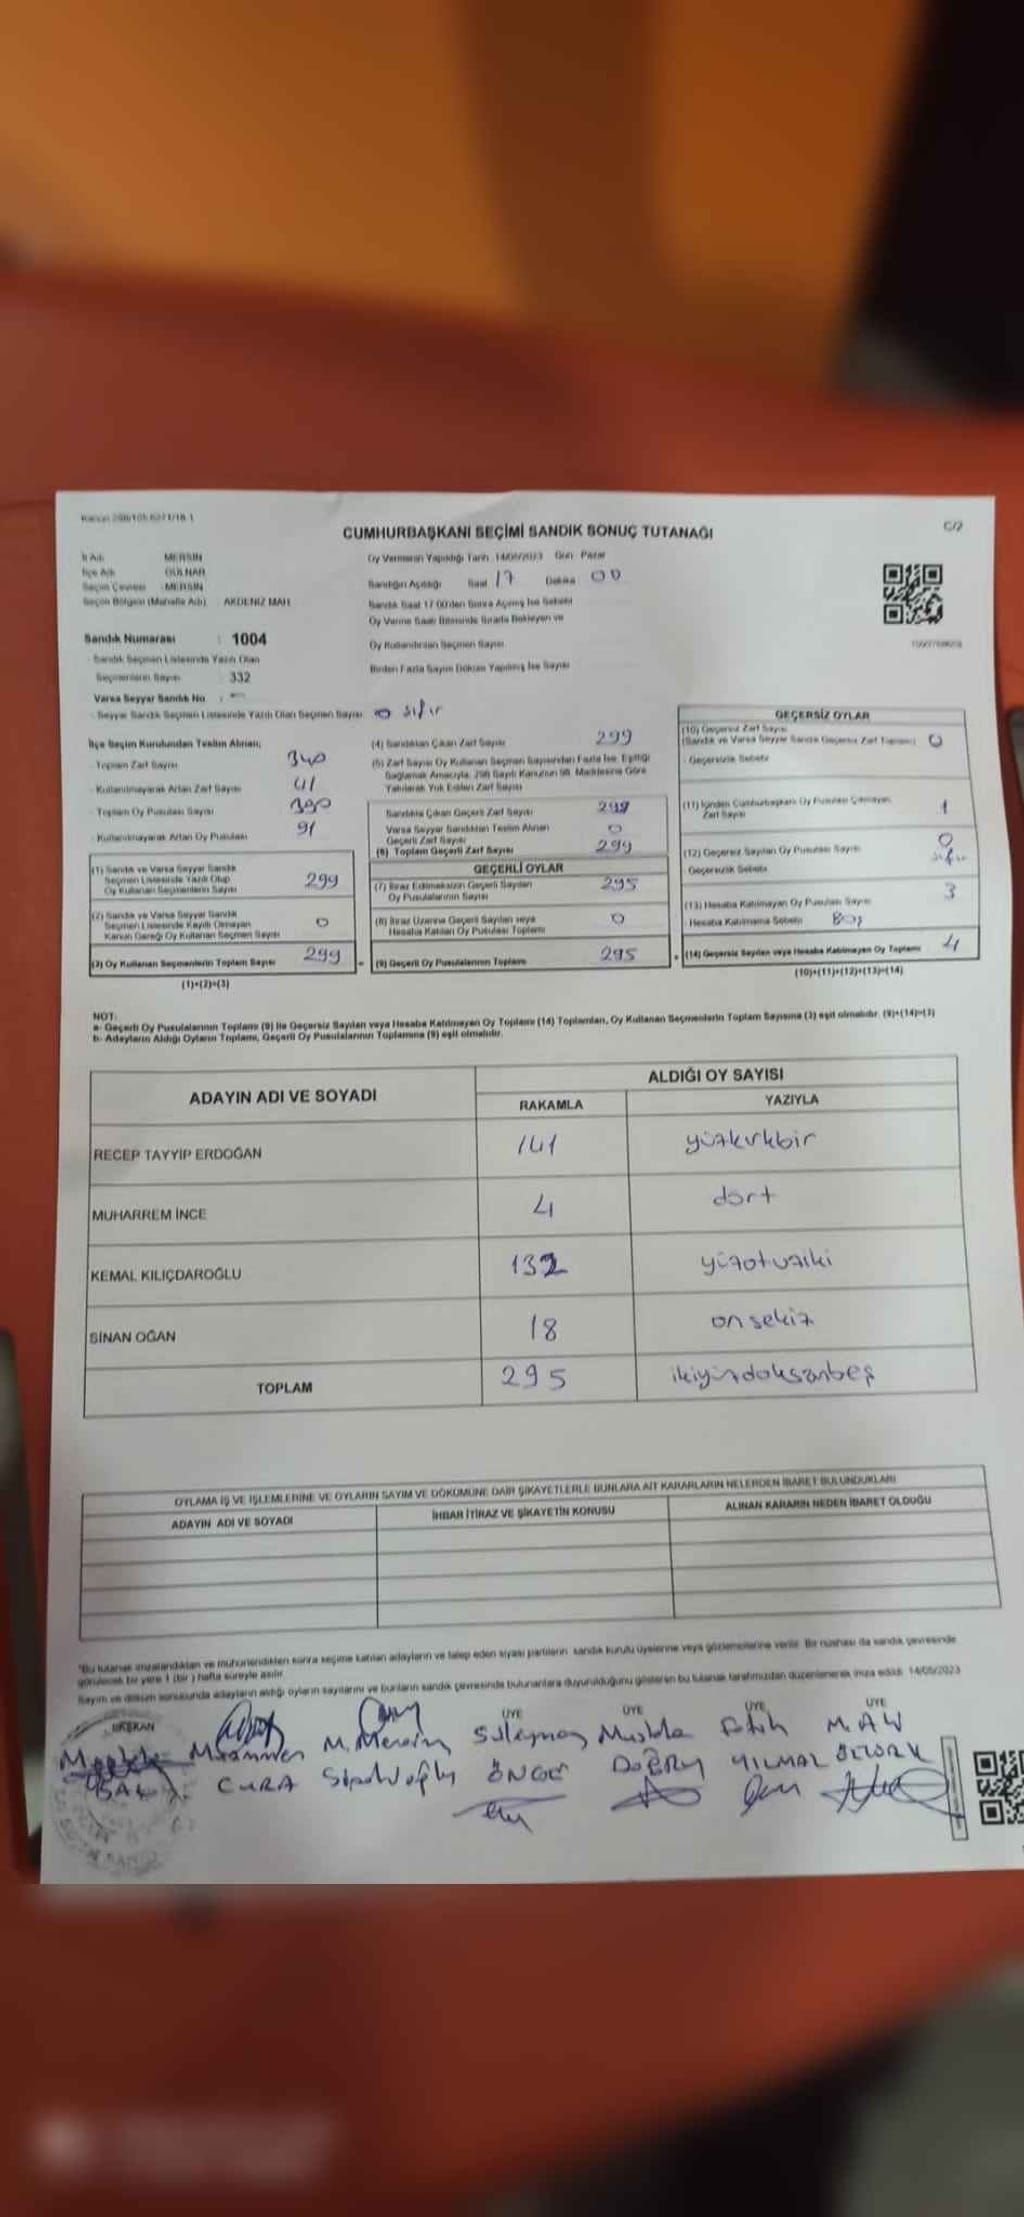 CUMHURBAŞKANI SEÇİMİ SANDIK SONUÇ TUTANAĞI
C/2
İl Adı MERSİN
İlçe Adı GÜLNAR
Seçim Çevresi : MERSİN
Seçim Bölgesi (Mahalle Adı) : AKDENİZ MAH.
Oy Vermenin Yapıldığı Tarih 14/05/2023 Gün Pazar
Sandığın Açıldığı Saat 17 Dakika 00
Sandık Saat 17.00'den Sonra Açılmış İse Sebebi
Oy Verme Saati Bitiminde Sırada Bekleyen ve
Oy Kullandırılan Seçmen Sayısı
Birden Fazla Sayım Döküm Yapılmış İse Sayısı
Sandık Numarası : 1004
- Sandık Seçmen Listesinde Yazılı Olan
Seçmenlerin Sayısı : 332
Varsa Seyyar Sandık No : -
- Seyyar Sandık Seçmen Listesinde Yazılı Olan Seçmen Sayısı 0 sıfır
İlçe Seçim Kurulundan Teslim Alınan;
- Toplam Zarf Sayısı 340
- Kullanılmayarak Artan Zarf Sayısı 41
- Toplam Oy Pusulası Sayısı 390
- Kullanılmayarak Artan Oy Pusulası 91
(1) Sandık ve Varsa Seyyar Sandık
Seçmen Listesinde Yazılı Olup
Oy Kullanan Seçmenlerin Sayısı 299
(2) Sandık ve Varsa Seyyar Sandık
Seçmen Listesinde Kayıtlı Olmayan
Kanun Gereği Oy Kullanan Seçmen Sayısı 0
(3) Oy Kullanan Seçmenlerin Toplam Sayısı 299
(1)+(2)=(3)
(4) Sandıktan Çıkan Zarf Sayısı 299
(5) Zarf Sayısı Oy Kullanan Seçmen Sayısından Fazla İse, Eşitliği
Sağlamak Amacıyla, 298 Sayılı Kanunun 98. Maddesine Göre
Yakılarak Yok Edilen Zarf Sayısı
Sandıkta Çıkan Geçerli Zarf Sayısı 299
Varsa Seyyar Sandıktan Teslim Alınan
Geçerli Zarf Sayısı 0
(6) Toplam Geçerli Zarf Sayısı 299
GEÇERLİ OYLAR
(7) İtiraz Edilmeksizin Geçerli Sayılan
Oy Pusulalarının Sayısı 295
(8) İtiraz Üzerine Geçerli Sayılan veya
Hesaba Katılan Oy Pusulası Toplamı 0
(9) Geçerli Oy Pusulalarının Toplamı 295
GEÇERSİZ OYLAR
(10) Geçersiz Zarf Sayısı
(Sandık ve Varsa Seyyar Sandık Geçersiz Zarf Toplamı) 0
Geçersizlik Sebebi
(11) İçinden Cumhurbaşkanı Oy Pusulası Çıkmayan
Zarf Sayısı 1
(12) Geçersiz Sayılan Oy Pusulası Sayısı 0 sıfır
Geçersizlik Sebebi
(13) Hesaba Katılmayan Oy Pusulası Sayısı 3
Hesaba Katılmama Sebebi Boş
(14) Geçersiz Sayılan veya Hesaba Katılmayan Oy Toplamı 4
(10)+(11)+(12)+(13)=(14)
NOT:
a- Geçerli Oy Pusulalarının Toplamı (9) İle Geçersiz Sayılan veya Hesaba Katılmayan Oy Toplamı (14) Toplamları, Oy Kullanan Seçmenlerin Toplam Sayısına (3) eşit olmalıdır. (9)+(14)=(3)
b- Adayların Aldığı Oyların Toplamı, Geçerli Oy Pusulalarının Toplamına (9) eşit olmalıdır.
ADAYIN ADI VE SOYADI
ALDIĞI OY SAYISI
RAKAMLA YAZIYLA
RECEP TAYYİP ERDOĞAN 141 yüzkırkbir
MUHARREM İNCE 4 dört
KEMAL KILIÇDAROĞLU 132 yüzotuziki
SİNAN OĞAN 18 onsekiz
TOPLAM 295 ikiyüzdoksanbeş
OYLAMA İŞ VE İŞLEMLERİNE VE OYLARIN SAYIM VE DÖKÜMÜNE DAİR ŞİKAYETLERLE BUNLARA AİT KARARLARIN NELERDEN İBARET BULUNDUKLARI
ADAYIN ADI VE SOYADI İHBAR İTİRAZ VE ŞİKAYETİN KONUSU ALINAN KARARIN NEDEN İBARET OLDUĞU
"Bu tutanak imzalandıktan ve mühürlendikten sonra seçime katılan adayların ve talep eden siyasi partilerin sandık kurulu üyelerine veya gözlemcilerine verilir. Bir nüshası da sandık çevresinde
görülecek bir yere 1 (bir) hafta süreyle asılır.
Sayım ve döküm sonucunda adayların aldığı oyların sayılarını ve bunların sandık çevresinde bulunanlara duyurulduğunu gösteren bu tutanak tarafımızdan düzenlenerek imza edildi. 14/05/2023
BAŞKAN ÜYE ÜYE ÜYE ÜYE
M. Mersin Süleyman Fatih
CURA ÖNGE YILMAZ